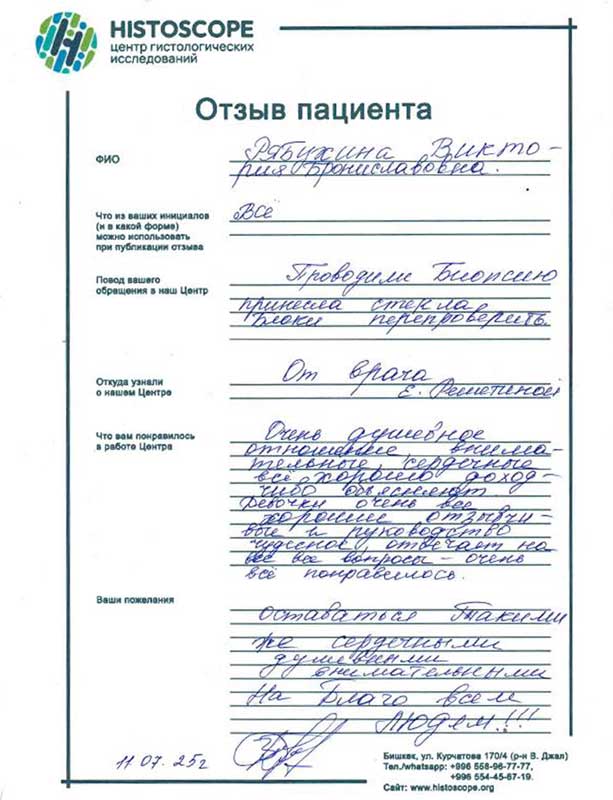 HISTOSCOPE
центр гистологических
исследований
Отзыв пациента
ФИО
Рябухина Викто-
рия Брониславовна.
Что из ваших инициалов
(и в какой форме)
можно использовать
при публикации отзыва
Всё
Повод вашего
обращения в наш Центр
Проводили Биопсию
принесла стекла
Блоки перепроверить.
Откуда узнали
о нашем Центре
От врача
Е. Решетиной
Что вам понравилось
в работе Центра
Очень душевное
отношение, внима-
тельные, сердечные
всё хорошо доход-
чиво объясняют.
Девочки очень все
хорошие отзывчи-
вые и руководство
чудесное, отвечает на
все вопросы - очень
всё понравилось.
Ваши пожелания
оставаться Такими
же сердечными
душевными
внимательными
На Благо всем
Людям!!!
11.07.25г
Бишкек, ул. Курчатова 170/4 (р-н В. Джал)
Тел./whatsapp: +996 558-96-77-77,
+996 554-45-67-19.
Сайт: www.histoscope.org